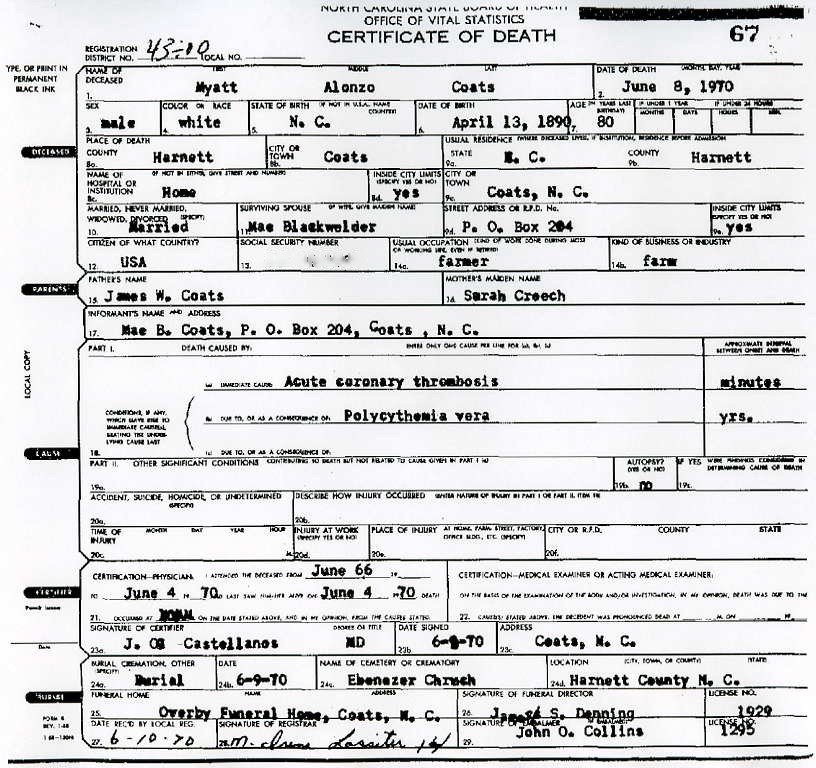 NORTH CAROLINA STATE BOARD OF HEALTH
OFFICE OF VITAL STATISTICS
CERTIFICATE OF DEATH 67
REGISTRATION DISTRICT NO. 43-10 LOCAL NO.
YPE, OR PRINT IN PERMANENT BLACK INK
NAME OF DECEASED FIRST MIDDLE LAST DATE OF DEATH MONTH, DAY, YEAR
1. Myatt Alonzo Coats 2. June 8, 1970
SEX COLOR OR RACE STATE OF BIRTH (IF NOT IN U.S.A. NAME COUNTRY) DATE OF BIRTH AGE (IN YEARS LAST BIRTHDAY) IF UNDER 1 YEAR IF UNDER 24 HOURS
MONTHS DAYS HOURS MIN.
3. male 4. white 5. N. C. 6. April 13, 1890 7. 80
DECEASED
PLACE OF DEATH USUAL RESIDENCE (WHERE DECEASED LIVED, IF INSTITUTION, RESIDENCE BEFORE ADMISSION)
COUNTY Harnett CITY OR TOWN Coats STATE N. C. COUNTY Harnett
8a. 8b. 9a. 9b.
NAME OF HOSPITAL OR INSTITUTION (IF NOT IN EITHER, GIVE STREET AND NUMBER) Home INSIDE CITY LIMITS (SPECIFY YES OR NO) yes CITY OR TOWN Coats, N. C.
8c. 8d. 9c.
MARRIED, NEVER MARRIED, WIDOWED, DIVORCED (SPECIFY) SURVIVING SPOUSE (IF WIFE, GIVE MAIDEN NAME) STREET ADDRESS OR R.F.D. No. INSIDE CITY LIMITS (SPECIFY YES OR NO)
10. Married 11. Mae Blackwelder 9d. P. O. Box 204 9e. yes
CITIZEN OF WHAT COUNTRY? SOCIAL SECURITY NUMBER USUAL OCCUPATION (KIND OF WORK DONE DURING MOST OF WORKING LIFE, EVEN IF RETIRED) KIND OF BUSINESS OR INDUSTRY
12. USA 13. 14a. farmer 14b. farm
PARENTS
FATHER'S NAME MOTHER'S MAIDEN NAME
15. James W. Coats 16. Sarah Creech
INFORMANT'S NAME AND ADDRESS
17. Mae B. Coats, P. O. Box 204, Coats , N. C.
LOCAL COPY
PART I. DEATH CAUSED BY: ENTER ONLY ONE CAUSE PER LINE FOR (a), (b), (c) APPROXIMATE INTERVAL BETWEEN ONSET AND DEATH
(a) IMMEDIATE CAUSE: Acute coronary thrombosis minutes
CONDITIONS, IF ANY, WHICH GAVE RISE TO IMMEDIATE CAUSE(a), STATING THE UNDERLYING CAUSE LAST
(b) DUE TO, OR AS A CONSEQUENCE OF: Polycythemia vera yrs.
CAUSE
18. (c) DUE TO, OR AS A CONSEQUENCE OF:
PART II. OTHER SIGNIFICANT CONDITIONS CONTRIBUTING TO DEATH BUT NOT RELATED TO CAUSE GIVEN IN PART I (a) AUTOPSY? (YES OR NO) IF YES WERE FINDINGS CONSIDERED IN DETERMINING CAUSE OF DEATH
19a. 19b. no 19c.
ACCIDENT, SUICIDE, HOMICIDE, OR UNDETERMINED (SPECIFY) DESCRIBE HOW INJURY OCCURRED (ENTER NATURE OF INJURY IN PART I OR PART II, ITEM 18)
20a. 20b.
TIME OF INJURY MONTH DAY YEAR HOUR INJURY AT WORK (SPECIFY YES OR NO) PLACE OF INJURY AT HOME, FARM, STREET, FACTORY, OFFICE BLDG., ETC. (SPECIFY) CITY OR R.F.D. COUNTY STATE
20c. M. 20d. 20e. 20f.
CERTIFIER
CERTIFICATION—PHYSICIAN: I ATTENDED THE DECEASED FROM June 66 19 CERTIFICATION—MEDICAL EXAMINER OR ACTING MEDICAL EXAMINER:
TO June 4 19 70 AND LAST SAW HIM-HER ALIVE ON June 4 70 DEATH ON THE BASIS OF THE EXAMINATION OF THE BODY AND/OR INVESTIGATION, IN MY OPINION, DEATH WAS DUE TO THE
21. OCCURRED AT M. ON THE DATE STATED ABOVE, AND IN MY OPINION, FROM THE CAUSES STATED. 22. CAUSE(S) STATED ABOVE. THE DECEDENT WAS PRONOUNCED DEAD AT M. ON
SIGNATURE OF CERTIFIER DEGREE OR TITLE DATE SIGNED ADDRESS
23a. Castellanos MD 23b. 70 23c. Coats, N. C.
Date
BURIAL, CREMATION, OTHER (SPECIFY) DATE NAME OF CEMETERY OR CREMATORY LOCATION (CITY, TOWN, OR COUNTY) (STATE)
24a. Burial 24b. 6-9-70 24c. Ebenezer Chruch 24d. Harnett County N. C.
BURIAL
FUNERAL HOME NAME ADDRESS SIGNATURE OF FUNERAL DIRECTOR LICENSE NO.
25. Overby Funeral Home, Coats, N. C. 26. James S. Denning 1929
FORM 8
REV. 1-68
DATE REC'D BY LOCAL REG. SIGNATURE OF REGISTRAR SIGNATURE OF EMBALMER LICENSE NO.
27. 6-10-70 28. M. Irene Lassiter 29. John O. Collins 1295